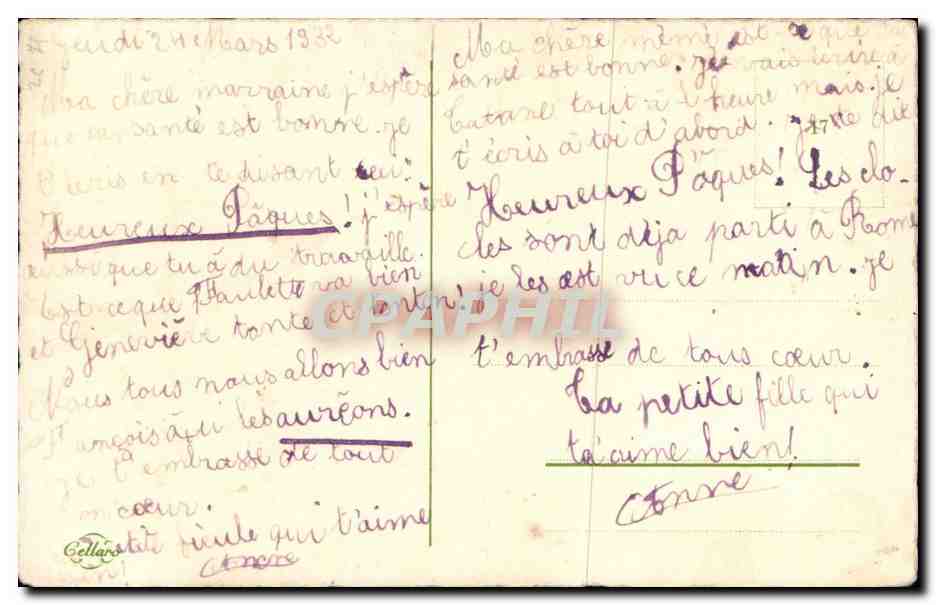 jeudi 24 Mars 1932
Ma chère marraine j'espère
que ta santé est bonne. je
t'écris en te disant ceci:
Heureux Pâques! j'espère
aussi que tu à du travaille.
Est-ce que Paulette va bien
et Geneviève tante et tonton!
Nous tous nous allons bien
ançois à qu les aurçons.
je t'embrasse de tout
m cœur.
etite fieule qui t'aime
bien!
Anne
Cellaro
Ma chère mémé est-ce que ta
santé est bonne. je vais écrire à
tatane tout-à-l'heure mais. je
t'écris à toi d'abord. je te dit
Heureux Pâques! Les clo-
ches sont déja parti à Rome
je les est vu ce matin. je
t'embrasse de tous cœur.
Ta petite fille qui
t'aime bien!
Anne
CPAPHIL